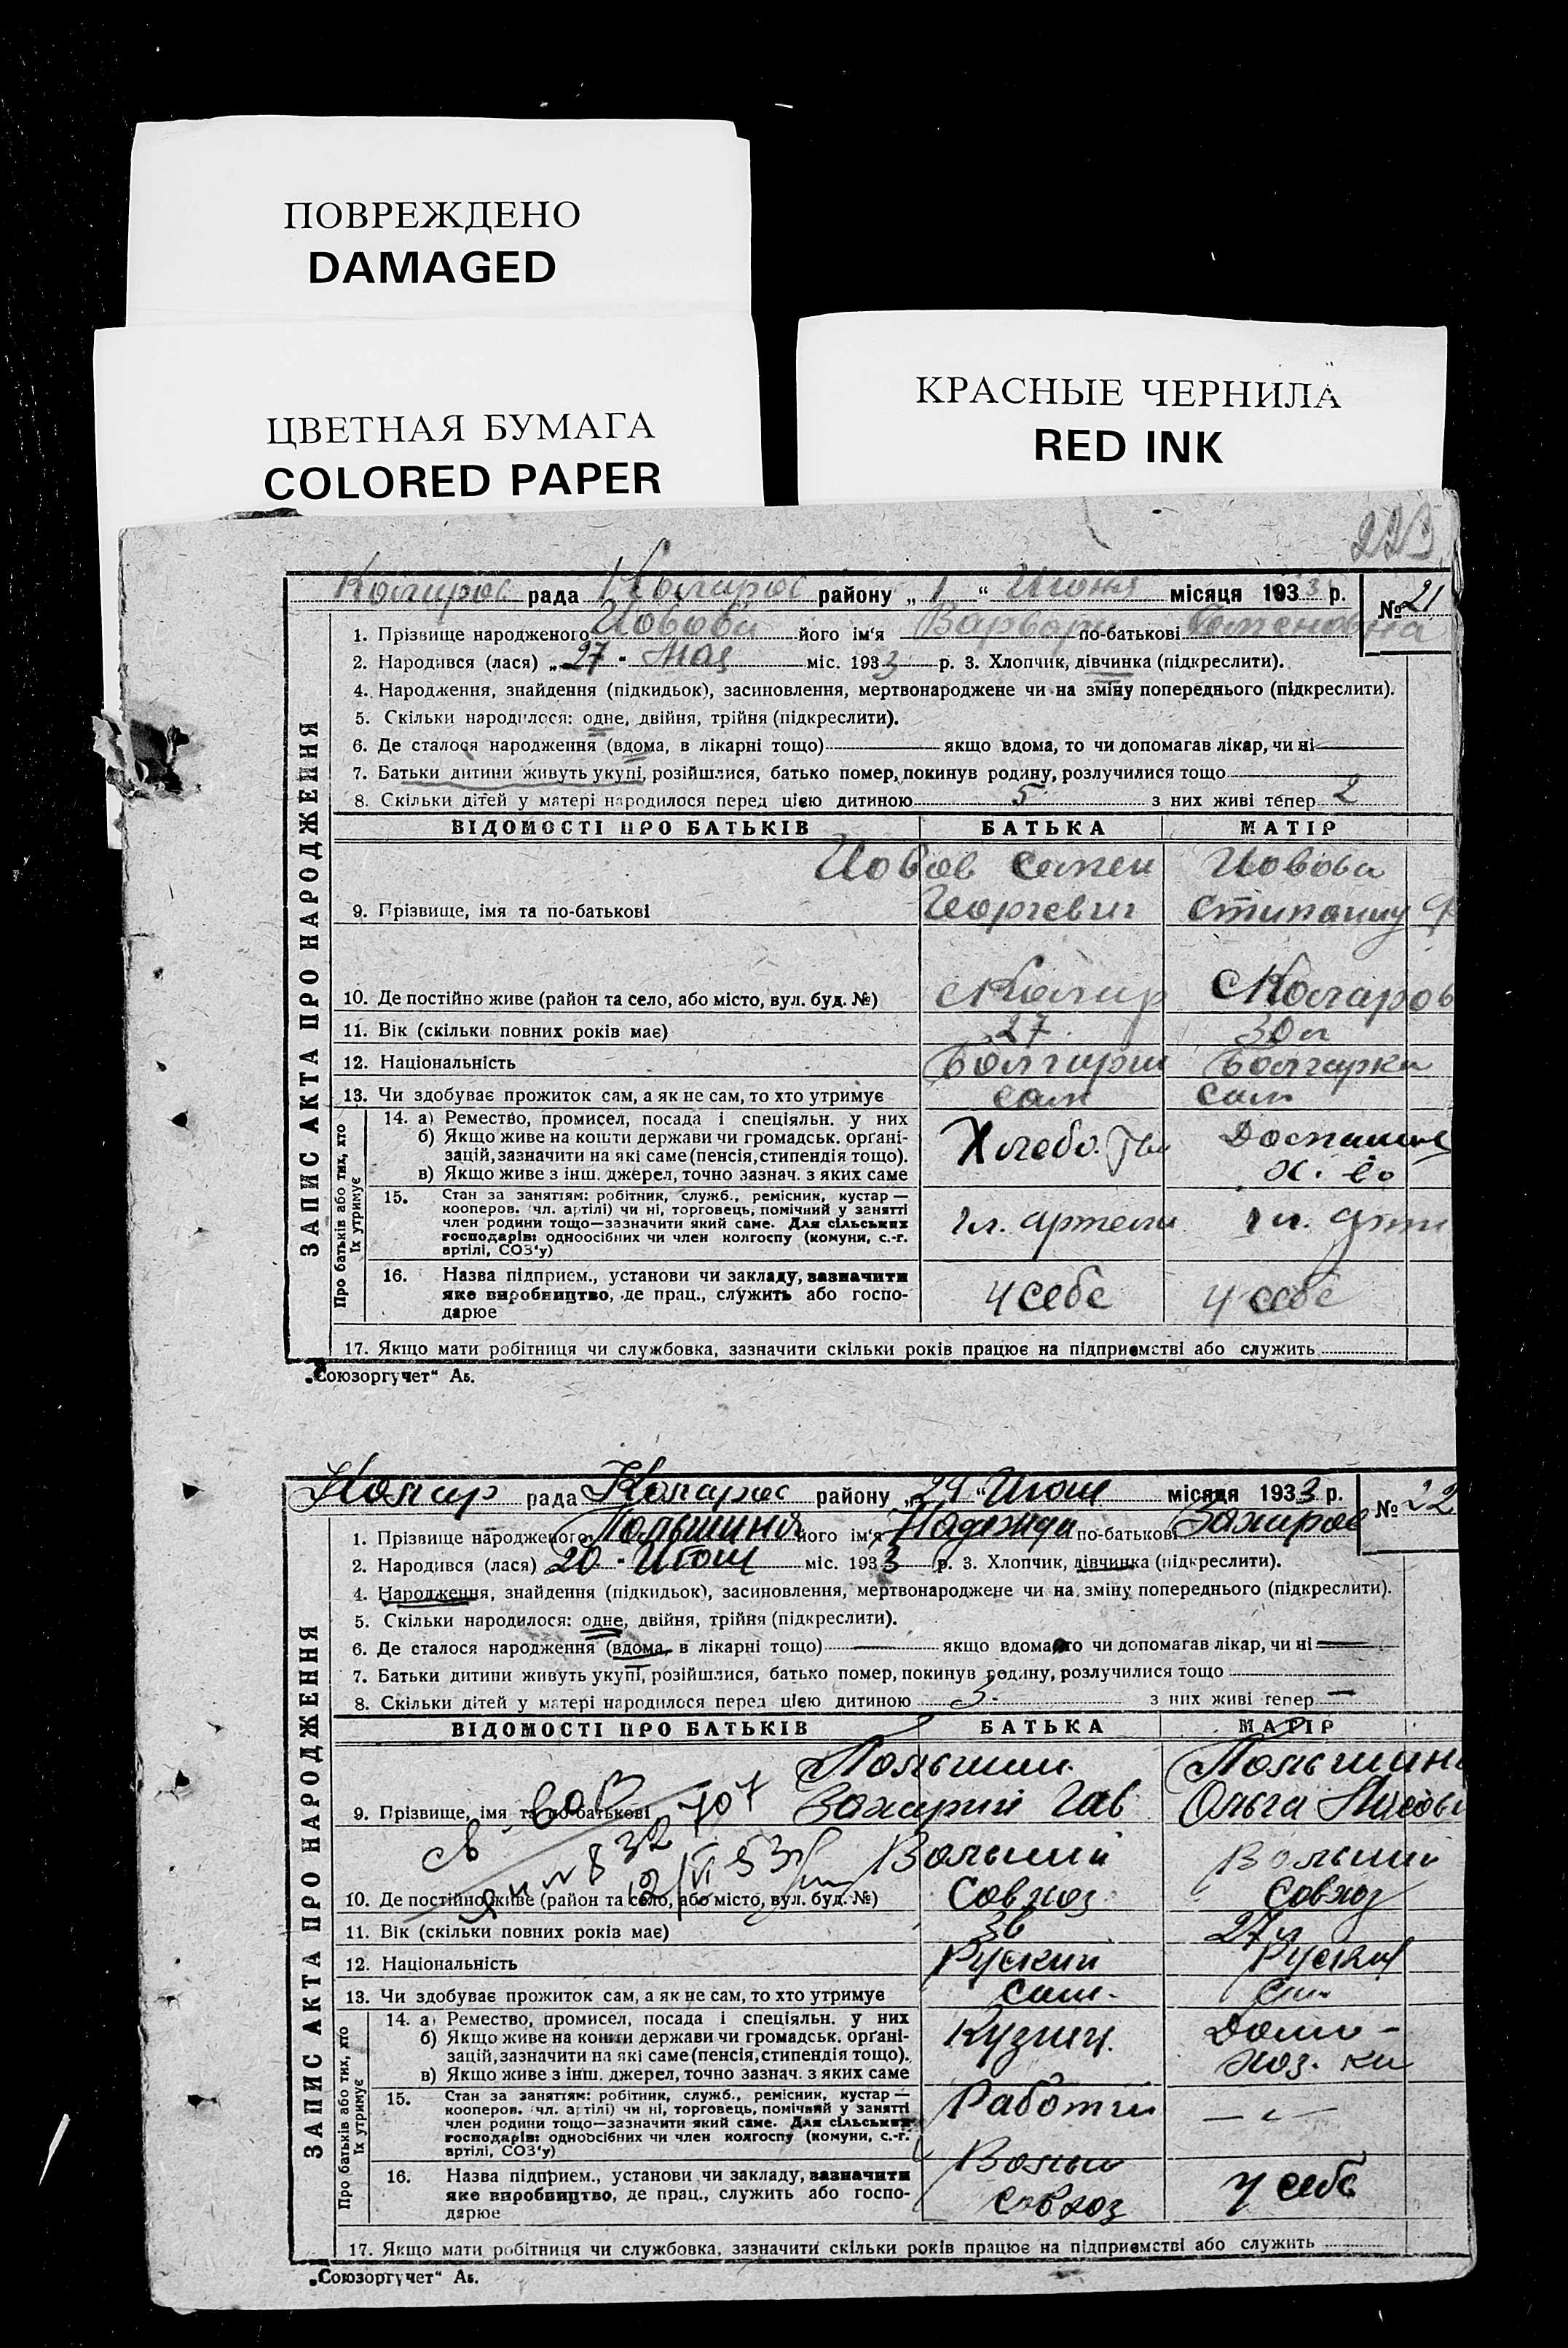 ПОВРЕЖДЕНО
DAMAGED
ЦВЕТНАЯ БУМАГА
COLORED PAPER
КРАСНЫЕ ЧЕРНИЛА
RED INK
рада району „ 1 “ Июня місяця 1933 р. № 21
1. Прізвище народженого Иовова його ім‘я Варвара по-батькові Семеновна
2. Народився (лася) „ 27 “ Мая міс. 1933 р. 3. Хлопчик, дівчинка (підкреслити).
4. Народження, знайдення (підкидьок), засиновлення, мертвонароджене чи на зміну попереднього (підкреслити).
5. Скільки народилося: одне, двійня, трійня (підкреслити).
6. Де сталося народження (вдома, в лікарні тощо) якщо вдома, то чи допомагав лікар, чи ні
7. Батьки дитини живуть укупі, розійшлися, батько помер, покинув родину, розлучилися тощо
8. Скільки дітей у матері народилося перед цією дитиною 5 з них живі тепер 2
ЗАПИС АКТА ПРО НАРОДЖЕННЯ
ВІДОМОСТІ ПРО БАТЬКІВ БАТЬКА МАТІР
Иовов Семен Иовова
9. Прізвище, імя та по-батькові Георгевич
10. Де постійно живе (район та село, або місто, вул. буд. №) Коларов
11. Вік (скільки повних років має) 27 30 л
12. Національність Болгарин Болгарка
13. Чи здобуває прожиток сам, а як не сам, то хто утримує сам сам
Про батьків або тих, хто їх утримує
14. а) Ремество, промисел, посада і спеціяльн. у них
б) Якщо живе на кошти держави чи громадськ. орґані-
зацій, зазначити на які саме (пенсія, стипендія тощо).
в) Якщо живе з інш. джерел, точно зазнач. з яких саме
15. Стан за заняттям: робітник, служб., ремісник, кустар —
кооперов. (чл. артілі) чи ні, торговець, помічний у занятті
член родини тощо—зазначити який саме. Для сільських
господарів: одноосібних чи член колгоспу (комуни, с.-г.
артілі, СОЗ‘у)
чл. артели
16. Назва підприєм., установи чи закладу, зазначити
яке виробництво, де прац., служить або госпо-
дарює
у себе у себе
17. Якщо мати робітниця чи службовка, зазначити скільки років працює на підприємстві або служить
„Союзоргучет“ Аб.
рада району „ “ місяця 1933 р. № 22
1. Прізвище народженого Польшина його ім‘я Надежда по-батькові
2. Народився (лася) 20 міс. 1933 р. 3. Хлопчик, дівчинка (підкреслити).
4. Народження, знайдення (підкидьок), засиновлення, мертвонароджене чи на зміну попереднього (підкреслити).
5. Скільки народилося: одне, двійня, трійня (підкреслити).
6. Де сталося народження (вдома, в лікарні тощо) якщо вдома, то чи допомагав лікар, чи ні
7. Батьки дитини живуть укупі, розійшлися, батько помер, покинув родину, розлучилися тощо
8. Скільки дітей у матері народилося перед цією дитиною 3 з них живі тепер —
ЗАПИС АКТА ПРО НАРОДЖЕННЯ
ВІДОМОСТІ ПРО БАТЬКІВ БАТЬКА МАТІР
Польшин Польшина
9. Прізвище, імя та по-батькові Захарий Гав Ольга
10. Де постійно живе (район та село, або місто, вул. буд. №) Совхоз Совхоз
11. Вік (скільки повних років має) 36 27 л
12. Національність Руский
13. Чи здобуває прожиток сам, а як не сам, то хто утримує сам.
Про батьків або тих, хто їх утримує
14. а) Ремество, промисел, посада і спеціяльн. у них
б) Якщо живе на кошти держави чи громадськ. орґані-
зацій, зазначити на які саме (пенсія, стипендія тощо).
в) Якщо живе з інш. джерел, точно зазнач. з яких саме
Кузнец. Домо-
хоз. ка
15. Стан за заняттям: робітник, служб., ремісник, кустар —
кооперов. (чл. артілі) чи ні, торговець, помічний у занятті
член родини тощо—зазначити який саме. Для сільських
господарів: одноосібних чи член колгоспу (комуни, с.-г.
артілі, СОЗ‘у)
16. Назва підприєм., установи чи закладу, зазначити
яке виробництво, де прац., служить або госпо-
дарює
совхоз у себе
17. Якщо мати робітниця чи службовка, зазначити скільки років працює на підприємстві або служить
„Союзоргучет“ Аб.